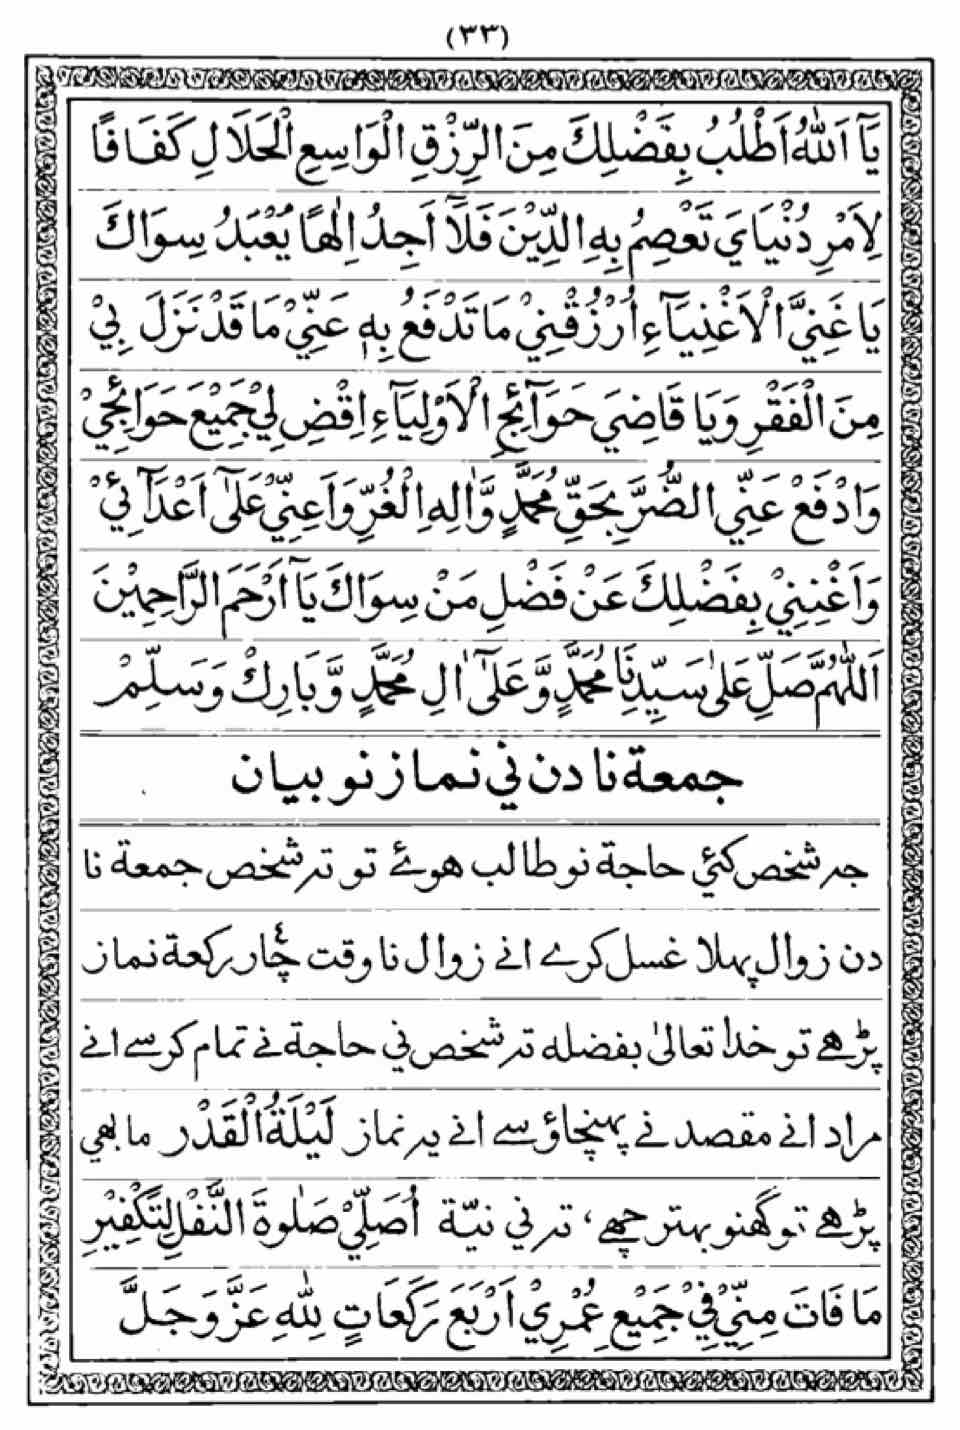 (٣٣)
يَآ اَللّٰهُ اَطْلُبُ بِفَضْلِكَ مِنَ الرِّزْقِ الْوَاسِعِ الْحَلَالِ كَفَافًا
لِاَمْرِ دُنْيَايَ تَعْصِمُ بِهِ الدِّيْنَ فَلَآ اَجِدُ اِلٰهًا يُعْبَدُ سِوَاكَ
يَا غَنِيَّ الْاَغْنِيَآءِ اُرْزُقْنِيْ مَا تَدْفَعُ بِهٖ عَنِّيْ مَا قَدْ نَزَلَ بِيْ
مِنَ الْفَقْرِ وَيَا قَاضِيَ حَوَآئِجِ الْاَوْلِيَآءِ اِقْضِ لِيْ جَمِيْعَ حَوَائِجِيْ
وَادْفَعْ عَنِّي الضُّرَّ بِحَقِّ مُحَمَّدٍ وَّاٰلِهِ الْغُرِّ وَاَعِنِّيْ عَلٰٓى اَعْدَآئِيْ
وَاَغْنِنِيْ بِفَضْلِكَ عَنْ فَضْلِ مَنْ سِوَاكَ يَآ اَرْحَمَ الرَّاحِمِيْنَ
اَللّٰهُمَّ صَلِّ عَلٰى سَيِّدِنَا مُحَمَّدٍ وَّعَلٰٓى اٰلِ مُحَمَّدٍ وَّبَارِكْ وَسَلِّمْ
جمعة نا دن ني نماز نو بيان
جه شخص كئي حاجة نو طالب هوئے تو ته شخص جمعة نا
دن زوال پهلا غسل كرے انے زوال نا وقت چار ركعة نماز
پڑهے تو خدا تعالىٰ بفضله ته شخص ني حاجة نے تمام كرسے انے
مراد انے مقصد نے پهنچاؤسے انے يه نماز لَيْلَةُ الْقَدْر ما بهي
پڑهے تو گهنو بهتر چھے، ته ني نيّة اُصَلِّيْ صَلٰوةَ النَّفْلِ لِتَكْفِيْرِ
مَا فَاتَ مِنِّيْ فِيْ جَمِيْعِ عِمُرِيْ اَرْبَعَ رَكَعَاتٍ لِلّٰهِ عَزَّ وَجَلَّ